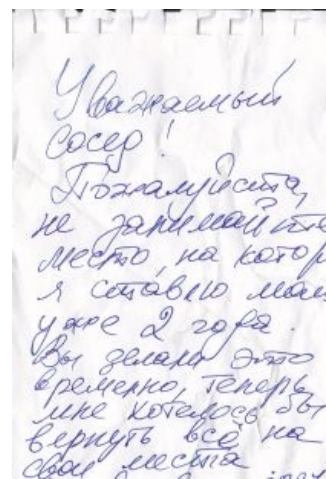 Уважаемый
сосед!
Пожалуйста,
не занимайте
место, на котор
я ставлю маш
уже 2 года.
Вы делали это
временно, теперь
мне хотелось бы
вернуть всё на
свои места